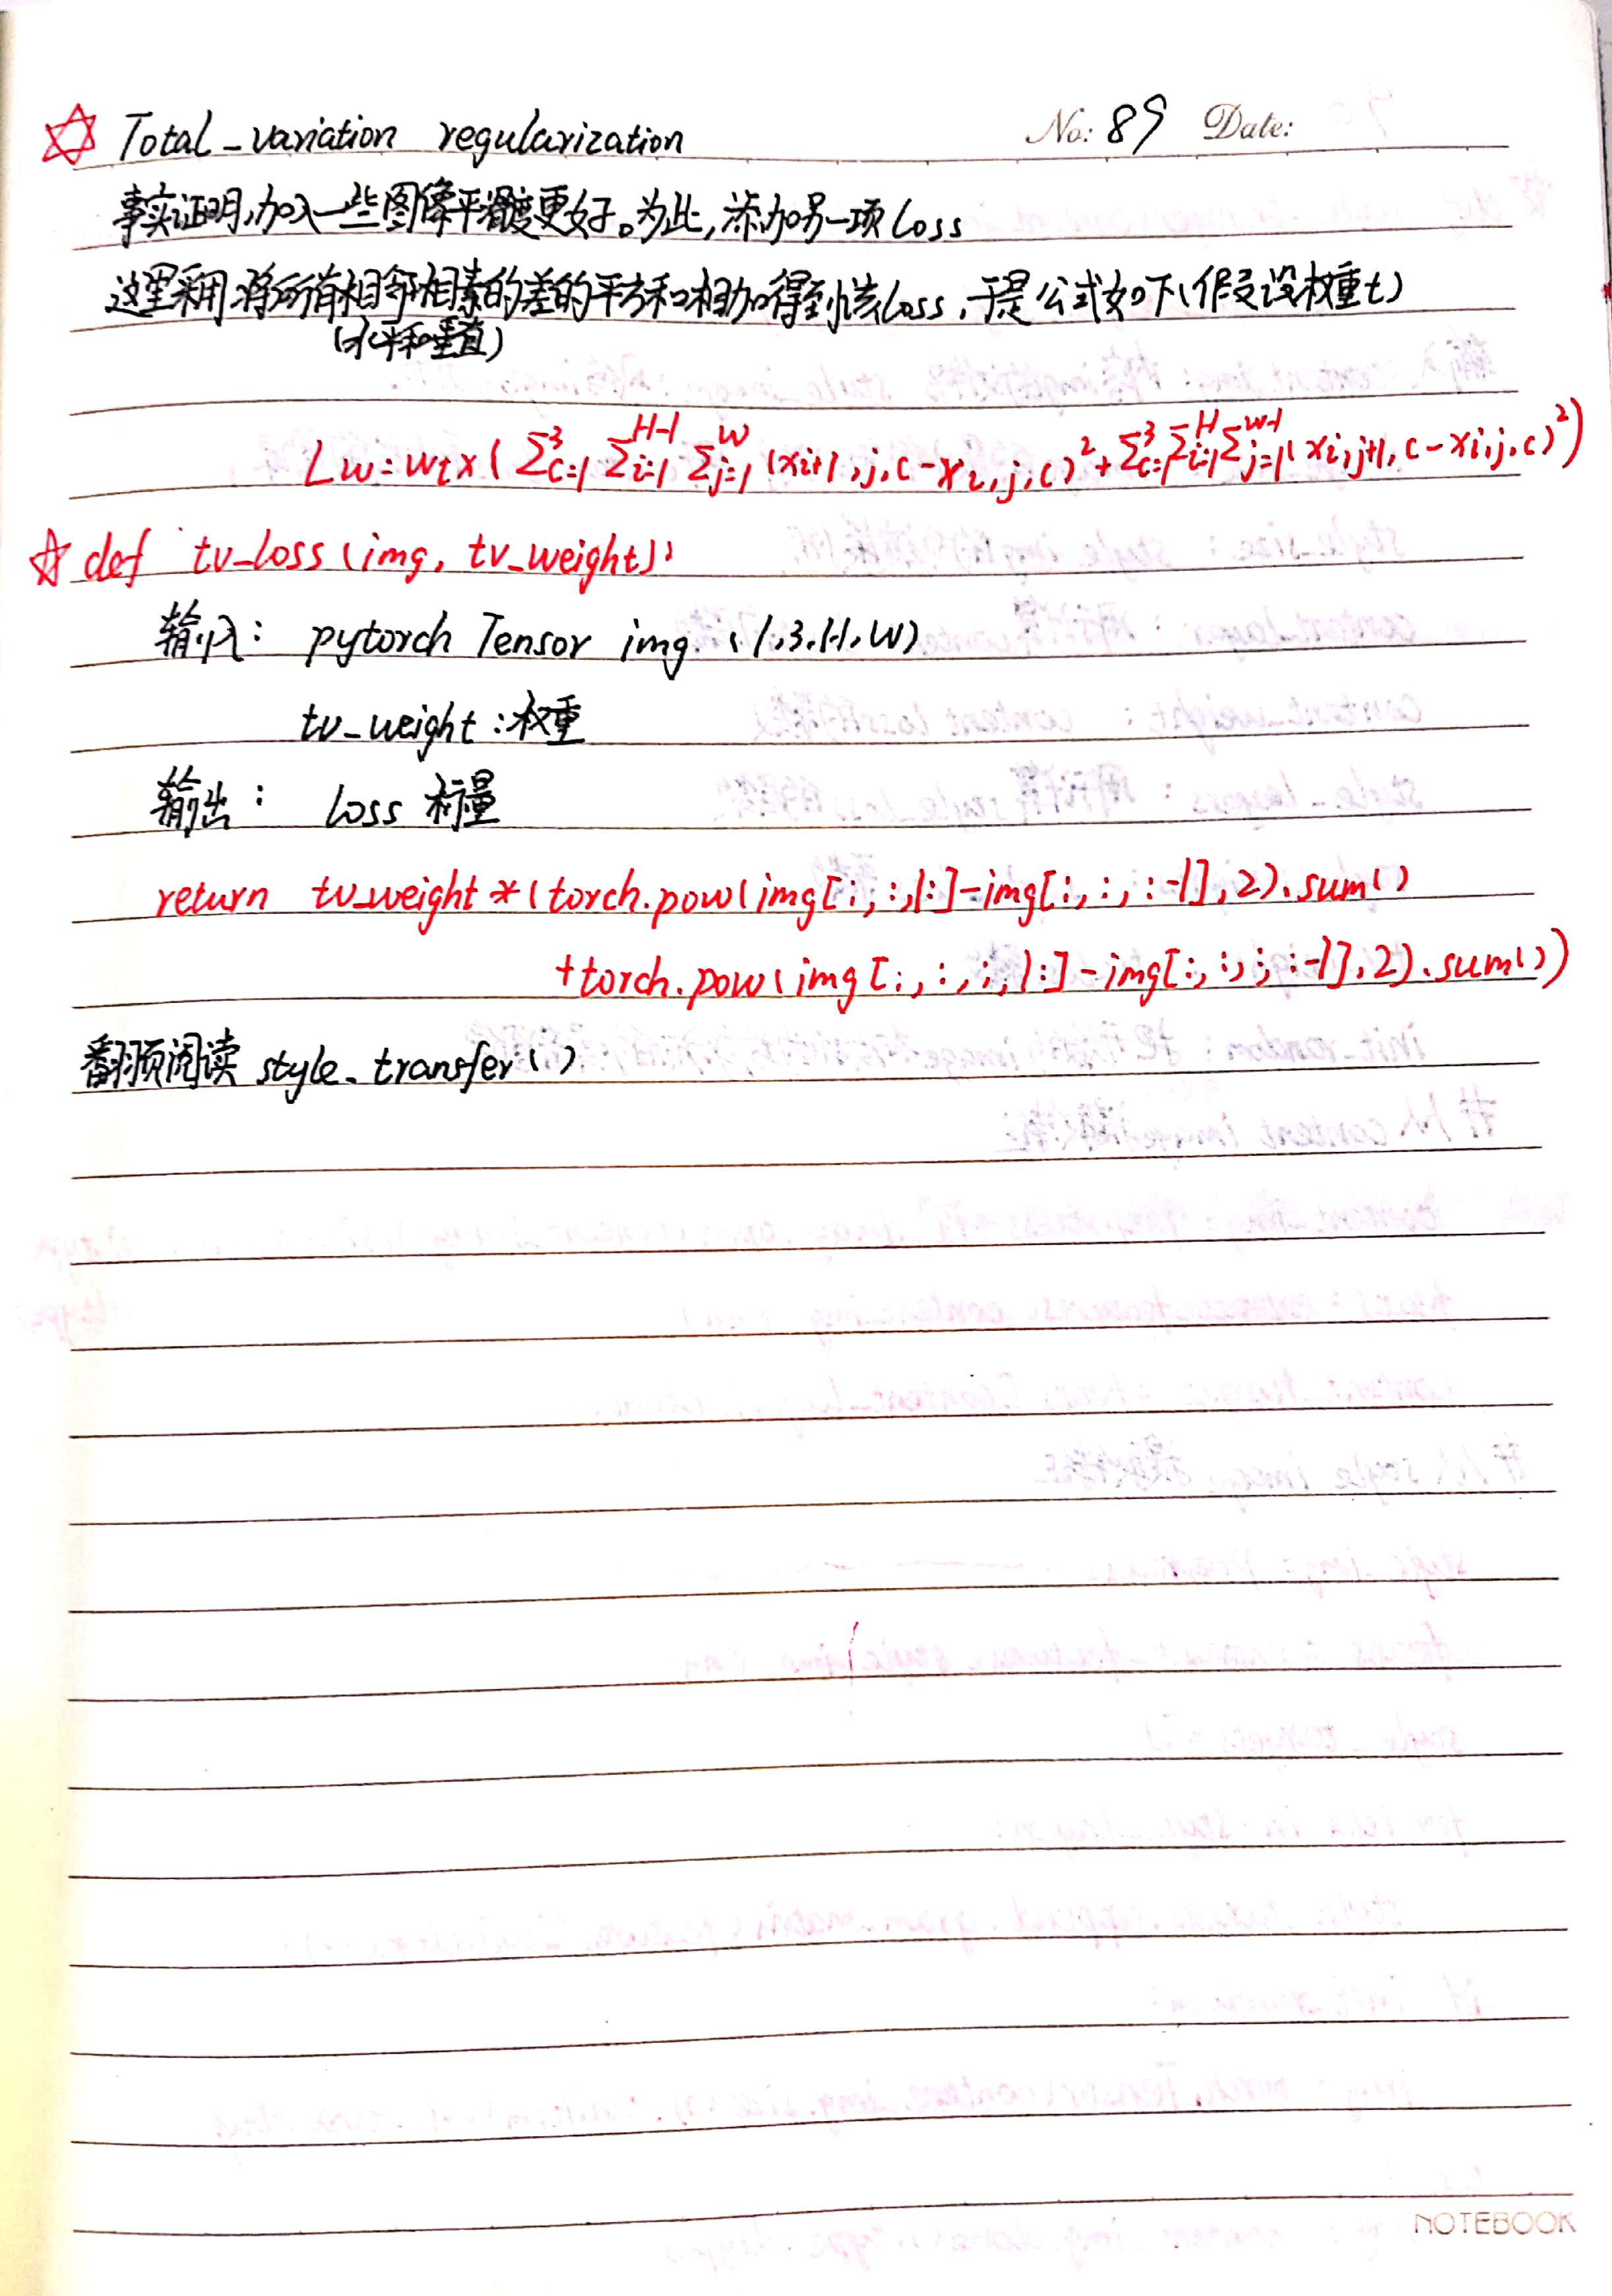 Total-variation regularization No: 89 Date:
事实证明,加入一些图像平滑度更好。为此,添加另一项Loss
这里采用:将所有相邻相素的差的平方和相加得到该Loss,于是公式如下(假设权重t)
(水平和垂直)
Lw=wt×(∑³c=1 ∑H-1 i=1 ∑W j=1 (xi+1,j,c-xi,j,c)²+∑³c=1∑H i=1∑W-1 j=1(xi,j+1,c-xi,j,c)²)
def tv-loss(img, tv_weight):
输入: pytorch Tensor img (1,3,H,W)
tv-weight:权重
输出: Loss 标量
return tv_weight*(torch.pow(img[:,:,1:]-img[:,:,:-1],2).sum()
+torch.pow(img[:,:,:,1:]-img[:,:,:,:-1],2).sum())
翻页阅读 style_transfer()
NOTEBOOK